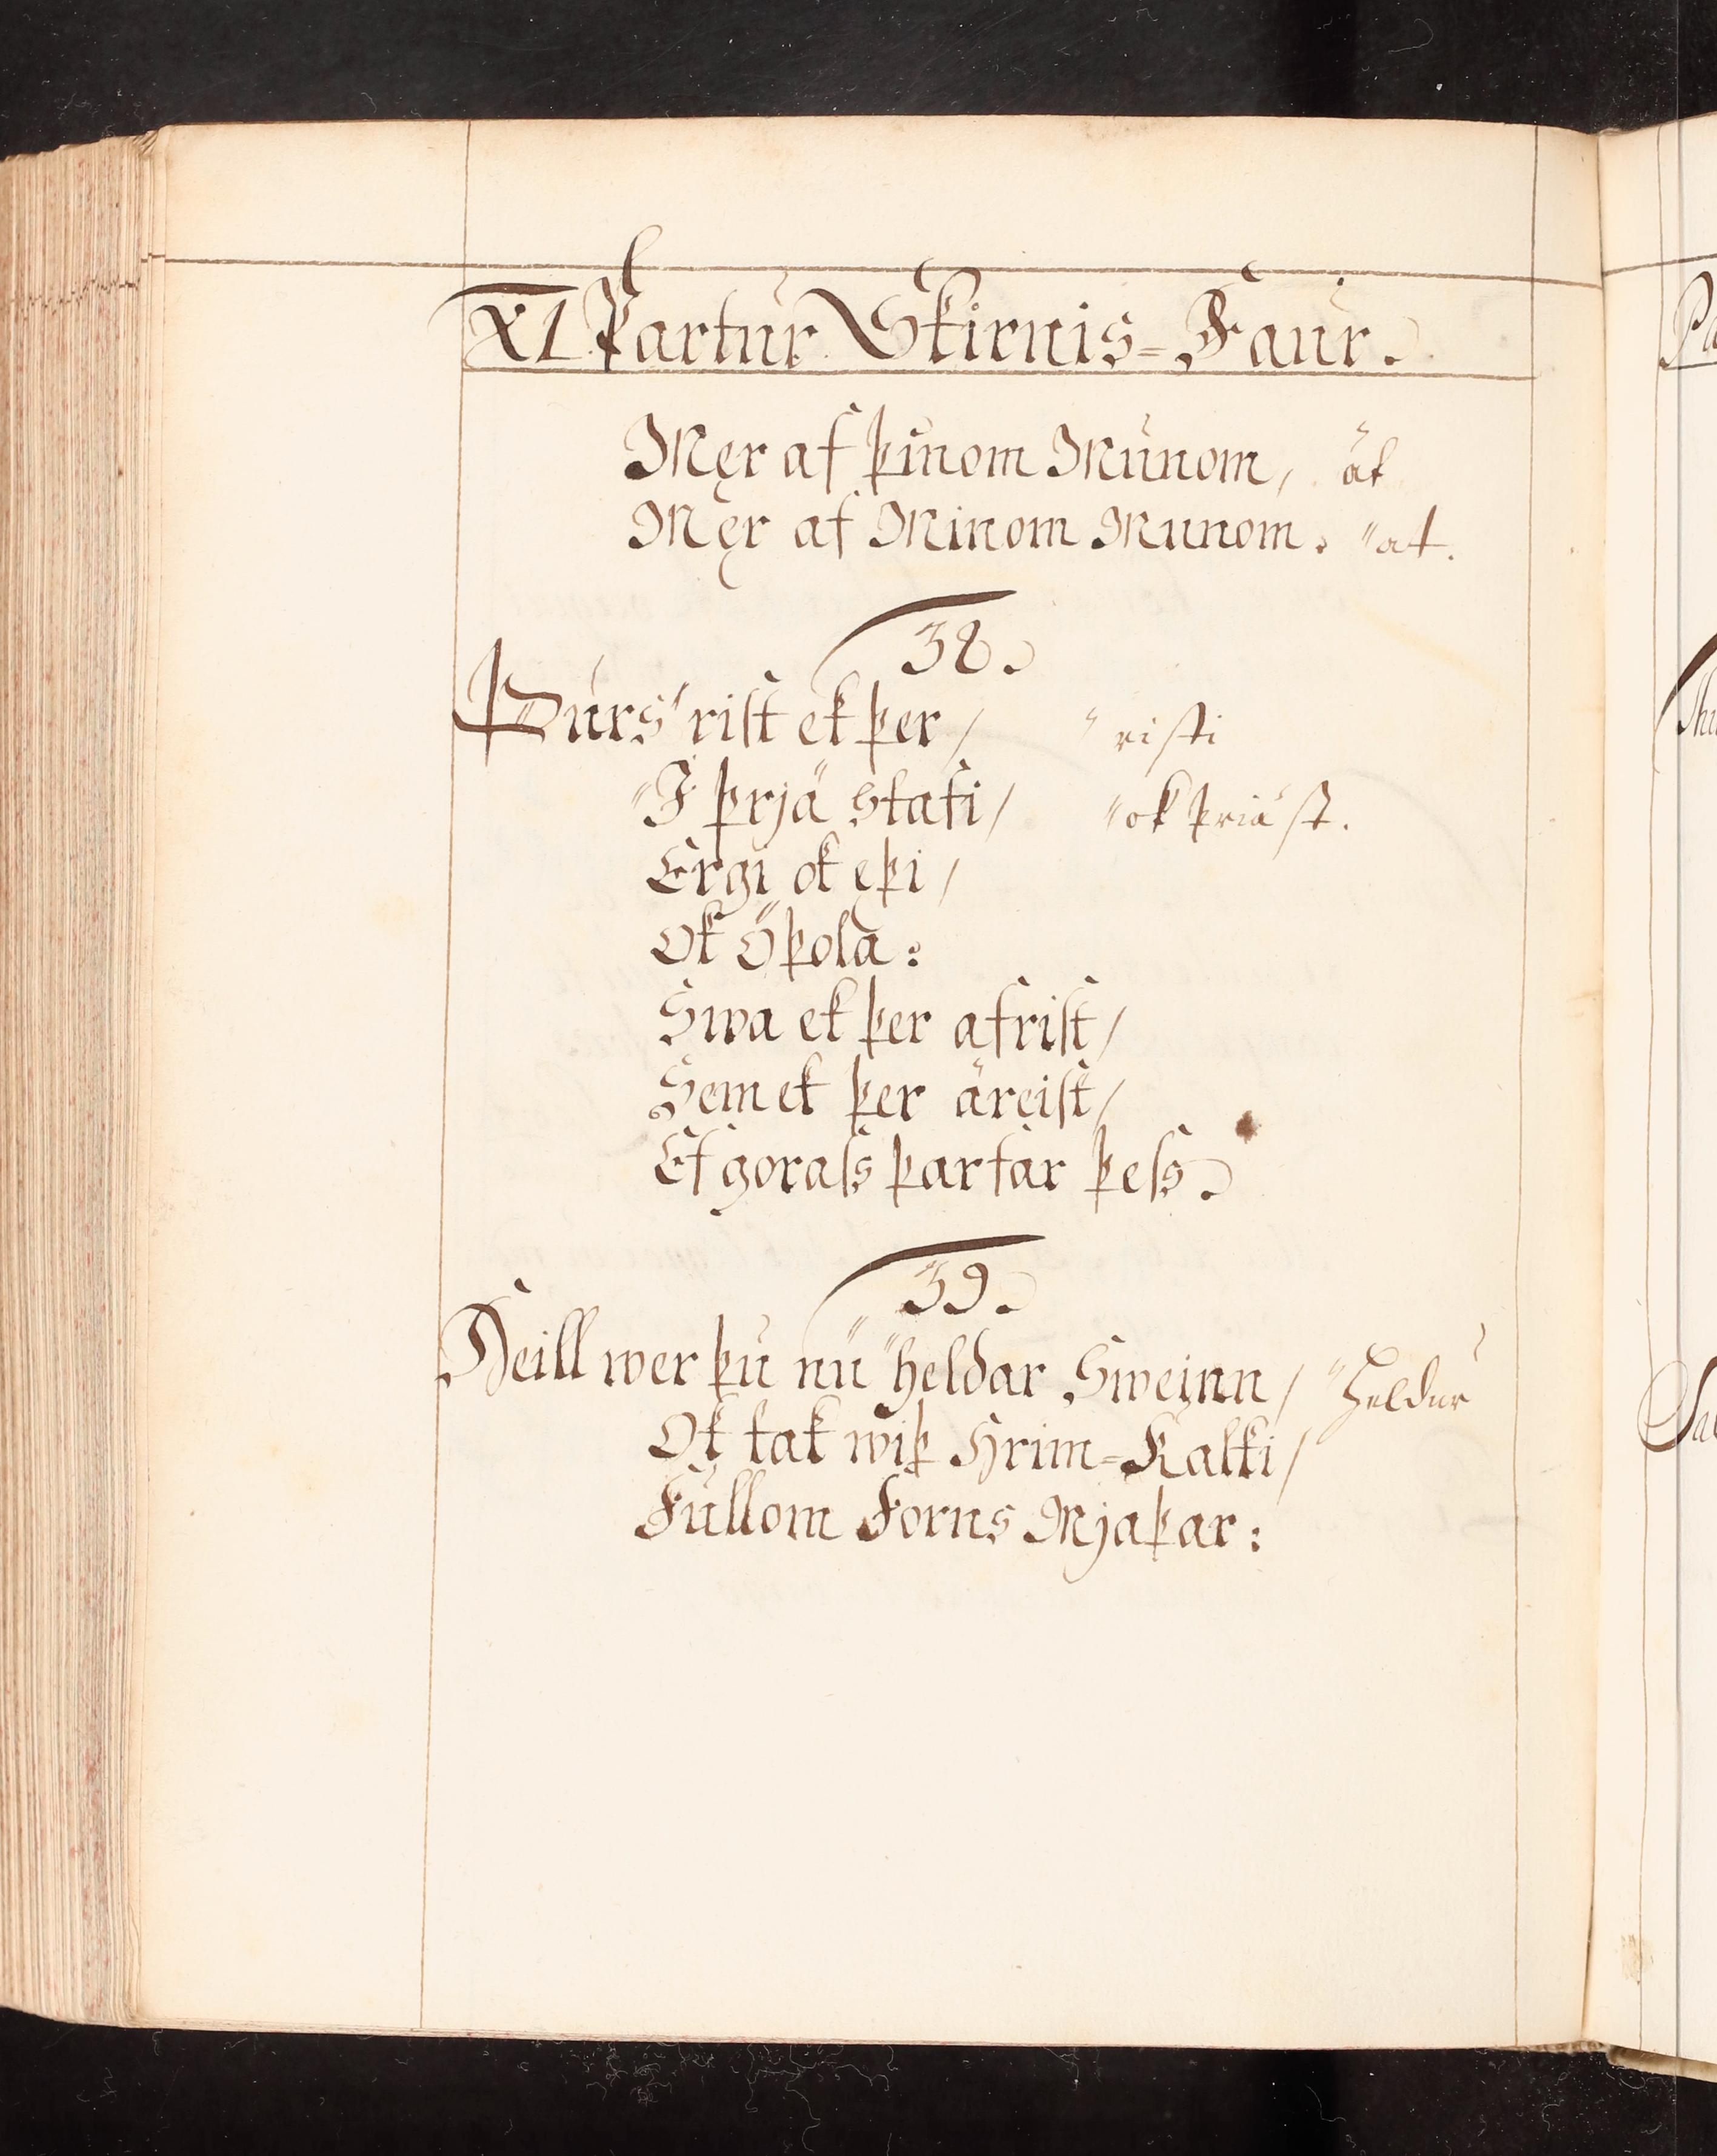 XI. Partur Skirnis=Faur.
Męr af þinom Munom, ät
Męr af Minom Munom. "at.
38.
Þurs "rist ek þer / " risti
"I þrjä stafi / "ok þriä st.
Ergi ok ęþi /
Ok Öþola:
Swa ek þer afrist /
Sem ek þer äreist /
Ef gorass þarfar þess.
39.
Heill wer þu nü "heldar Sweinn / "heldur
Ok tak wiþ Hrim=Kalki /
Fullom Forns Mjaþar: